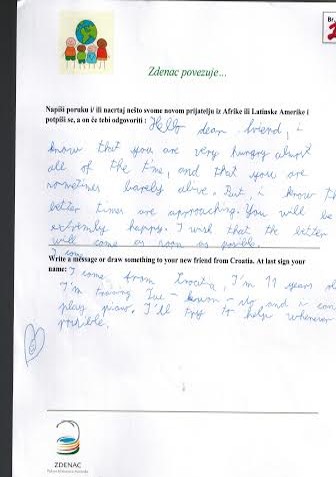 Br.
Zdenac povezuje...
Napiši poruku i/ ili nacrtaj nešto svome novom prijatelju iz Afrike ili Latinske Amerike i
potpiši se, a on će tebi odgovoriti : Hello dear friend, i
know that you are very hungry almost
all of the time, and that you are
sometimes barely alive. But, i know th
better times are approaching. You will be
extremly happy. I wish that the better
will come as soon as posible.
Write a message or draw something to your new friend from Croatia. At last sign your
name: I come from Croatia, I'm 11 years ol
I'm training Tae - kwon - do and i can
play piano. I'll try to help whenever
posible.
ZDENAC